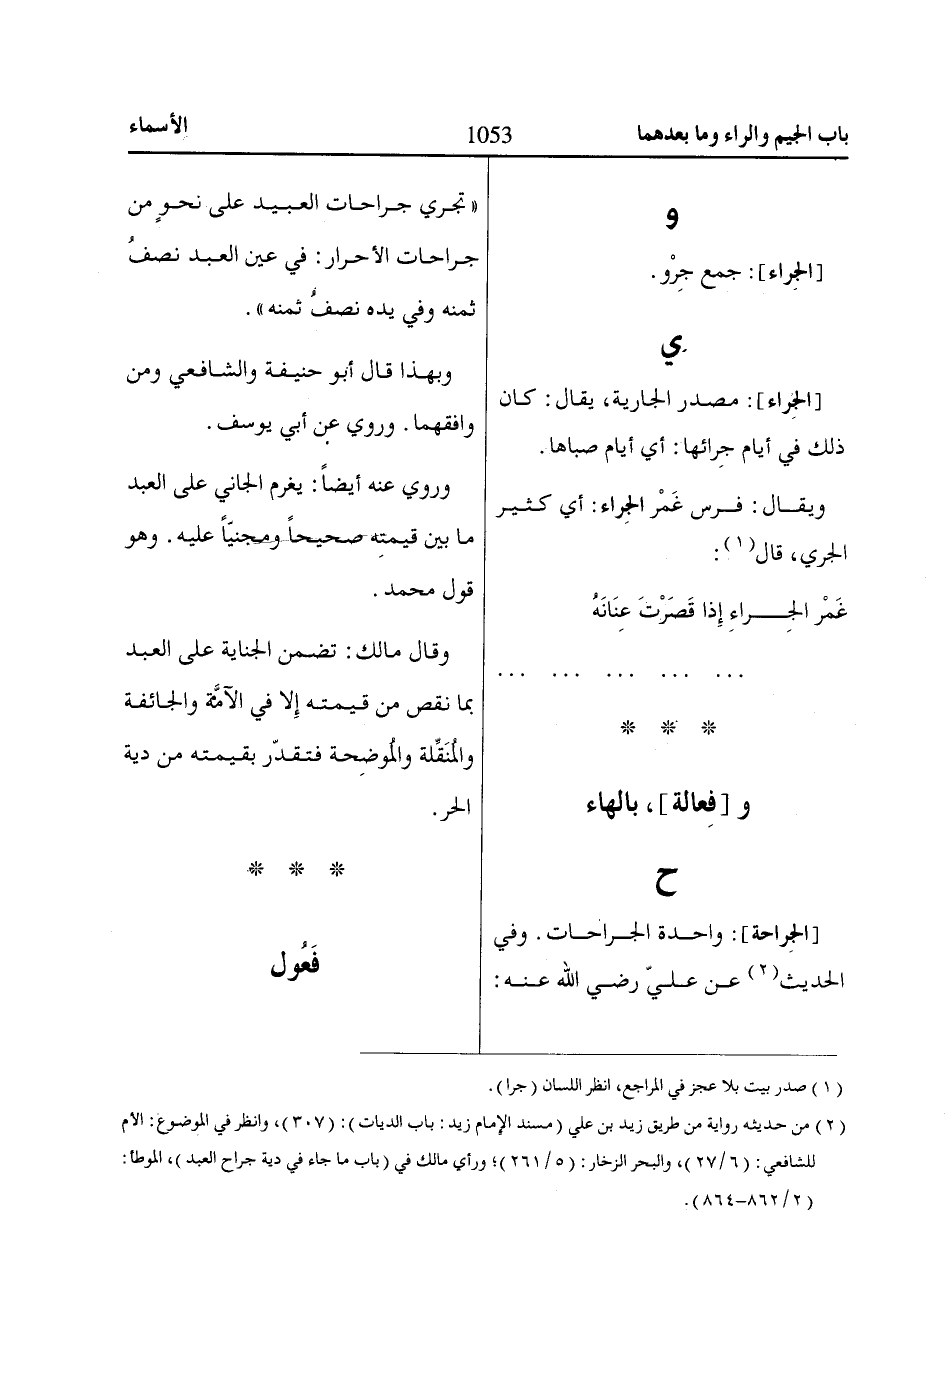 باب الجيم والراء وما بعدهما
1053
الأسماء
و
[الجِراء]: جمع جِرْو.
ي
[الجِراء]: مصدر الجارية، يقال: كان
ذلك في أيام جِرائها: أي أيام صباها.
ويقال: فرس غَمْر الجِراء: أي كثير
الجري، قال(١):
غَمْر الجِراء إِذا قَصَرْتَ عِنَانَهُ
... ... ... ... ...
* * *
و [فِعالة]، بالهاء
ح
[الجِراحة]: واحدة الجراحات. وفي
الحديث(٢) عن عليّ رضي الله عنه:
«تجري جراحات العبيد على نحوٍ من
جراحات الأحرار: في عين العبد نصفُ
ثمنه وفي يده نصفُ ثمنه».
وبهذا قال أبو حنيفة والشافعي ومن
وافقهما. وروي عن أبي يوسف.
وروي عنه أيضاً: يغرم الجاني على العبد
ما بين قيمته صحيحاً ومجنيّاً عليه. وهو
قول محمد.
وقال مالك: تضمن الجناية على العبد
بما نقص من قيمته إِلا في الآمَّة والجائفة
والمُنَقِّلة والمُوضِحة فتقدّر بقيمته من دية
الحر.
* * *
فَعُول
(١) صدر بيت بلا عجز في المراجع، انظر اللسان (جرا).
(٢) من حديثه رواية من طريق زيد بن علي (مسند الإمام زيد: باب الديات): (٣٠٧)، وانظر في الموضوع: الأم
للشافعي: (٢٧/٦)، والبحر الزخار: (٢٦١/٥)؛ ورأي مالك في (باب ما جاء في دية جراح العبد)، الموطأ:
(٨٦٢/٢-٨٦٤).